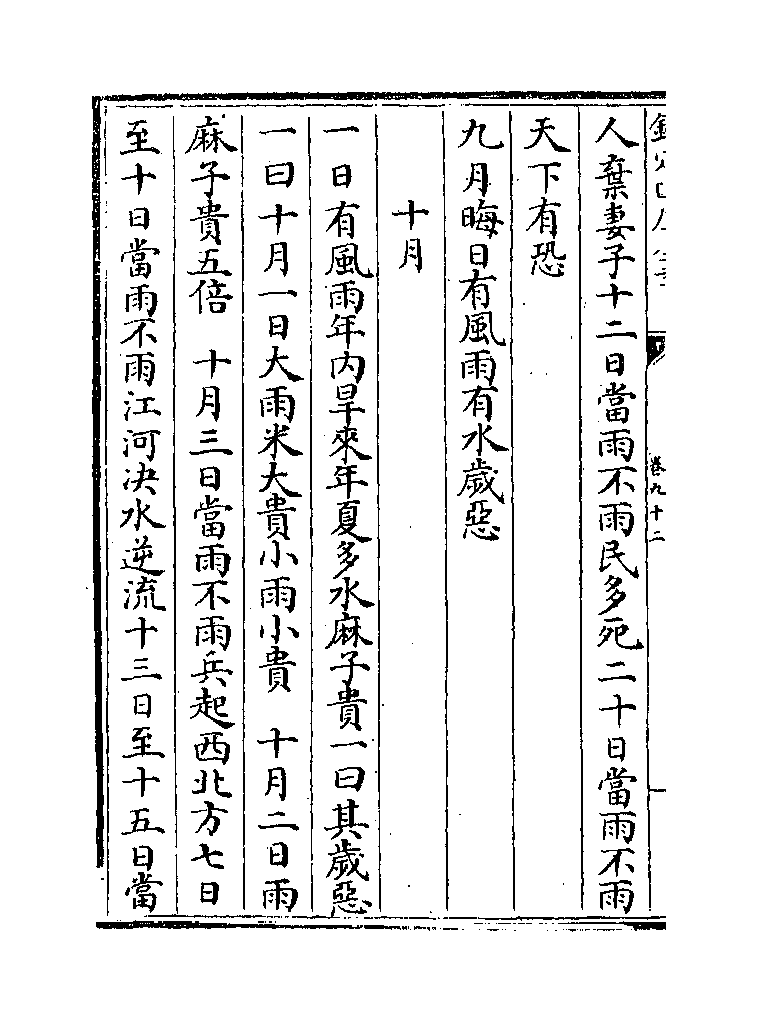 卷九十二
人棄妻子十二日當雨不雨民多死二十日當雨不雨
天下有恐
九月晦日有風雨有水歲惡
十月
一日有風雨年內旱來年夏多水麻子貴一曰其歲惡
一曰十月一日大雨米大貴小雨小貴　十月二日雨
麻子貴五倍　十月三日當雨不雨兵起西北方七日
至十日當雨不雨江河决水逆流十三日至十五日當